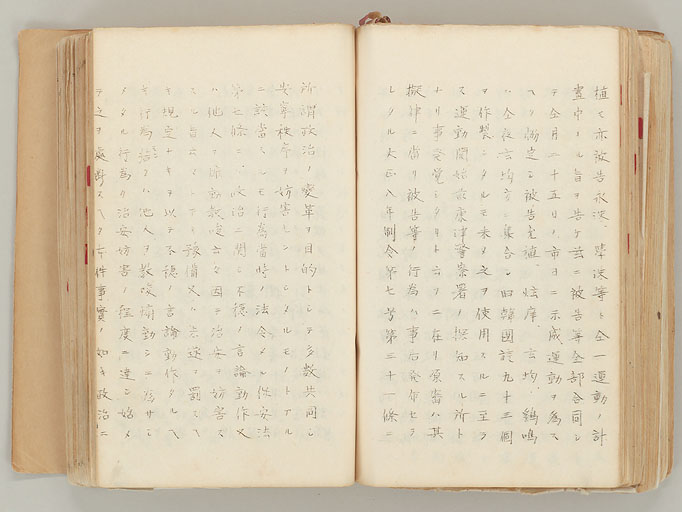 植モ亦被告永洙、肇洙等ト仝一運動ノ計
畫中ナル旨ヲ告ケ玆ニ被告等全部合同シ
テ仝月二十五日ノ市日ニ示威運動ヲ為ス
ヘク協定シ被告堯植、炫庠、玄均、鷄鳴
ハ仝夜玄均方ニ集合シ旧韓國旗九十三個
ヲ作製シタルモ未タ之ヲ使用スルニ至ラ
ス運動開始前唐津警察署ノ探知スル所ト
ナリ事発覚シタリト云フニ在リ原審ハ其
擬律ニ當リ被告等ノ行為ハ事后発布セラ
レタル大正八年制令第七号第三十一條ニ
所謂政治ノ変革ヲ目的トシテ多数共同シ
安寧秩序ヲ妨害シントシタルモノトアル
ニ該當スルモ行為當時ノ法令タル保安法
第七條ニハ政治ニ関シ不穏ノ言論動作又
ハ他人ヲ煽動教唆云々因テ治安ヲ妨害ス
スル旨云々トアリ豫備又ハ未遂ヲ罰スヘ
キ規定ナキヲ以テ不穏ノ言論動作タルヘ
キ行為若クハ他人ヲ教唆煽動シ
タル行為カ治安妨害ノ程度ニ達シ始メ
テ之ヲ處断スヘク本件事實ノ如キ政治ニ